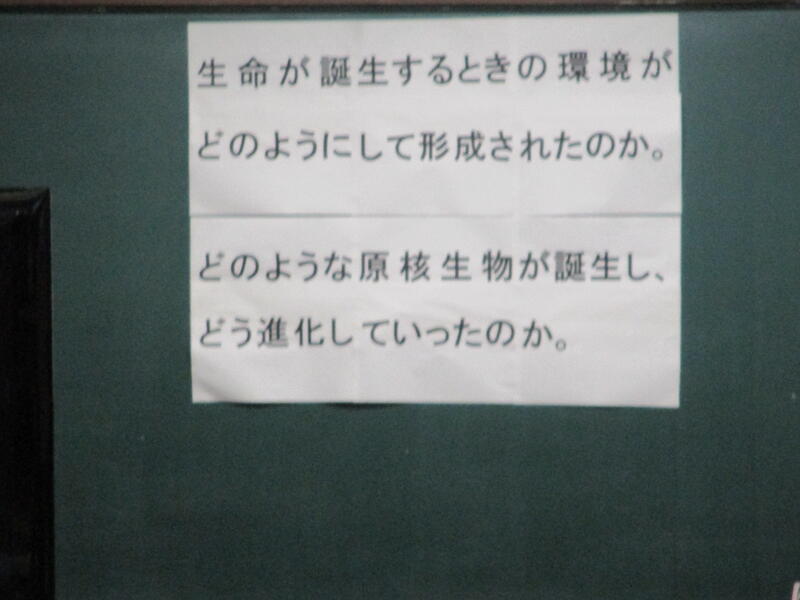 生命が誕生するときの環境が
どのようにして形成されたのか。
どのような原核生物が誕生し、
どう進化していったのか。